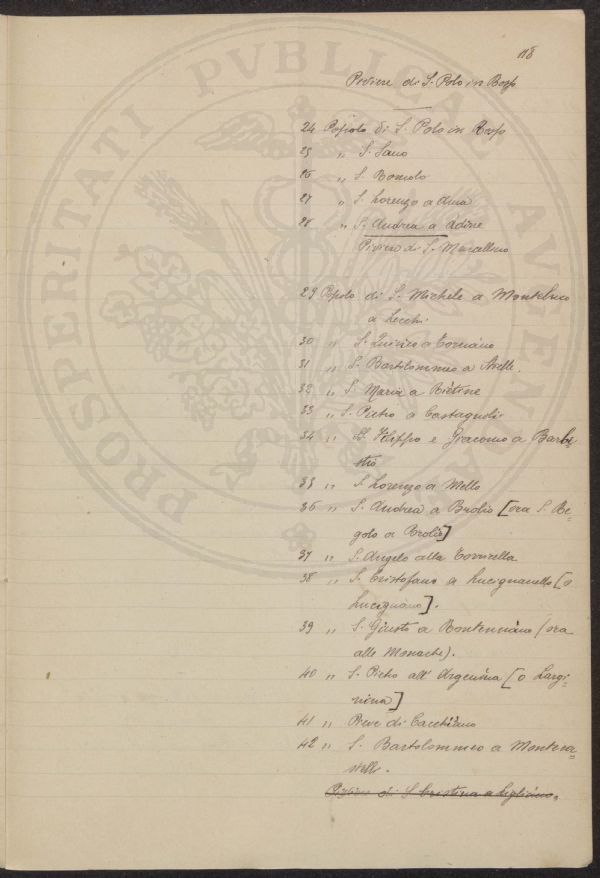 118
Piviere di S. Polo in Rosso
24 Popolo di S. Polo in Rosso
25 " S. Sano
26 " S. Romolo
27 " S. Lorenzo a Ama
28 " S. Andrea a Adine
Piviere di S. Marcellino
29 Popolo di S. Michele a Monteluco
a Lecchi.
30 " S. Quirico a Tornano
31 " S. Bartolommeo a Avelle.
32 " S. Maria a Rietine
33 " S. Pietro a Castagnoli
34 " SS. Filippo e Giacomo a Barbi-
stio
35 " S. Lorenzo a Mello
36 " S. Andrea a Brolio [ora S. Re-
golo a Brolio]
37 " S. Angelo alla Torricella
38 " S. Cristofano a Lucignanello [o
Lucignano].
39 " S. Giusto a Rontennano (ora
alle Monache).
40 " S. Pietro all' Argenina [o Largi-
nina]
41 " Pieve di Cacchiano
42 " S. Bartolommeo a Monteca-
stelli.
Piviere di S. Cristina a Ligliano.
PROSPERITATI PVBLICAE AVGENDAE